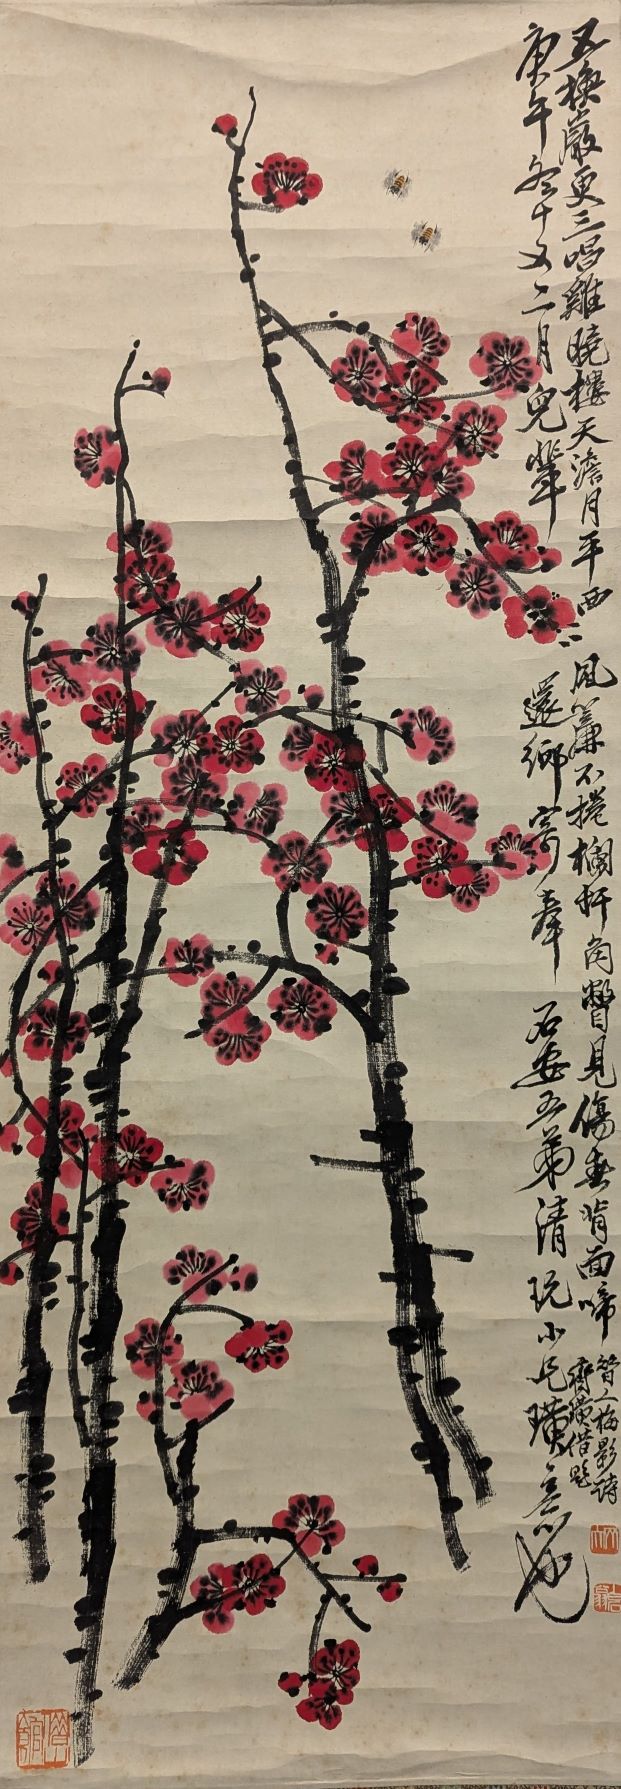 五換嚴更三唱雞曉樓天澹月平西風簾不捲欄杆角瞥見傷春背面啼
昔人梅影詩
齊璜借題
庚午冬十又二月兒輩還鄉寄奉
石安五弟清玩小兄璜意也